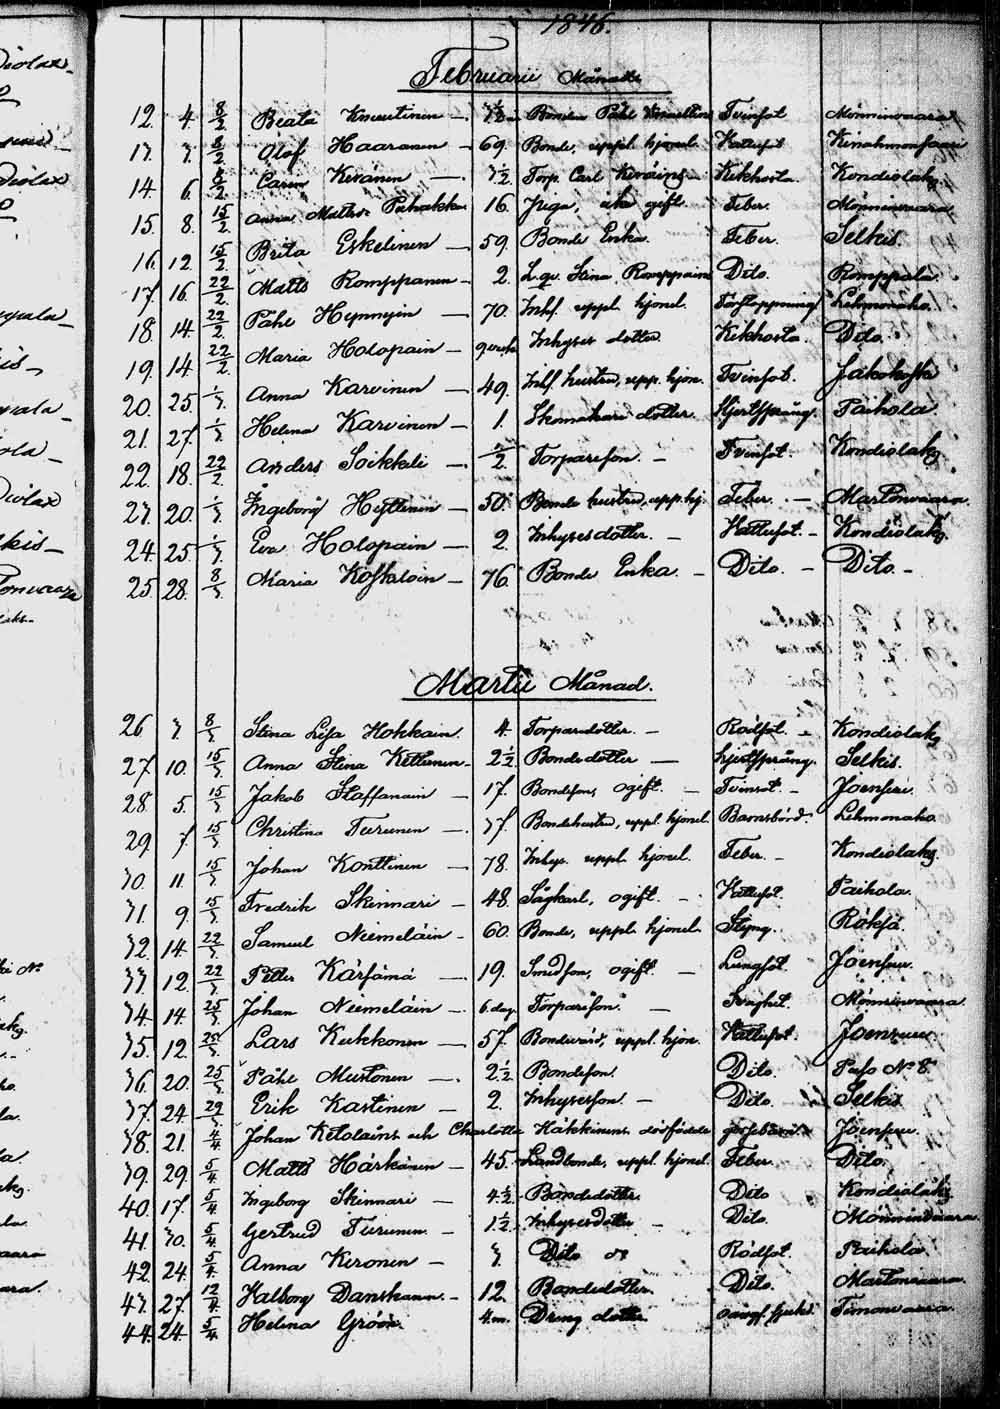 1846.
Februarii Månad
12. 4. 8/2 Beata Knuutinen — 1/2 Bonden Påhl Tvinsot Mönninvaara
13. 3. 8/2 Olof Haaranen — 69. Bonde, uppl. hjonel. Hallsot Kinahmonsaari
14. 6. 8/2 Carin Keränen — 1/2 Torp. Carl Kikhosta Kondiolaks
15. 8. 15/2 Anna Matsdr Pahakka 16. Piga, ogift Feber. Mönninvaara
16. 12. 15/2 Brita Eskelinen — 59. Bonde Enka. Feber. Selkis
17. 16. 22/2 Matts Romppanen — 2. L.gr. Stina Romppain Dito. Romppala.
18. 14. 22/2 Påhl Hynnyin — 70. Inhs. uppl. hjonel. Förstoppning Lehmonaho.
19. 14. 22/2 Maria Holopain — Inhyses dotter. Kikhosta. Dito.
20. 25. 1/3 Anna Karvinen — 49. Inhs. hustru, upp. hjon. Tvinsot. Jakokoski
21. 27. 1/3 Helena Karvinen — 1. Skomakare dotter. Hjertsprång. Paihola.
22. 18. 22/2 Anders Soikkeli — 1/2 Torpareson. — Tvinsot. Kondiolaks.
23. 20. 1/3 Ingeborg Hyttinen — 50. Bonde hustru, upp. hj. Feber. — Martonvaara
24. 25. 1/3 Eva Holopain — 2. Inhysesdotter. — Hallsot. — Kondiolaks.
25. 28. 8/3 Maria Koskeloin — 76. Bonde Enka. — Dito. — Dito. —
Martii Månad.
26 3. 8/3 Stina Lisa Hokkain. 4. Torparedotter. — Rödsot. — Kondiolaks
27. 10. 15/3 Anna Stina Kettunen — 2 1/2 Bondedotter — Hjertsprång. Selkis.
28. 5. 15/3 Jakob Staffanain — 17. Bondeson, ogift. — Tvinsot. — Joensuu.
29. 7. 15/3 Christina Turunen — 37. Bondehustru, uppl. hjonel. Barnsbörd. Lehmonaho
30. 11. 15/3 Johan Konttinen — 78. Inhys. uppl. hjonel. Feber. — Kondiolaks.
31. 9. 15/3 Fredrik Skinnari — 48. Sågkarl, ogift. — Hallsot. Paihola.
32. 14. 22/3 Samuel Niemeläin — 60. Bonde, uppl. hjonel. Styng. Röksä.
33. 12. 22/3 Petter Kärsämä — 19. Smedson, ogift. — Lungsot. Joensuu.
34. 14. 25/3 Johan Niemeläin — 6. dag. Torpareson. — Svaghet. Mönninvaara
35. 12. 25/3 Lars Kukkonen — 57. Bondevärd, uppl. hjon. Hallsot. Joensuu
36. 20. 25/3 Påhl Mustonen — 2 1/2 Bondeson. Dito. Puso No 8.
37. 24. 29/3 Erik Kastinen — 2. Inhyseson. — Dito. Selkis
38. 21. 4/4 Johan Ketolains och Charlotta Häkkinens dödfödde gossebarn. Joensuu.
39. 29. 5/4 Matts Härkänen — 45. Landbonde, uppl. hjonel. Feber. Dito.
40. 17. 5/4 Ingeborg Skinnari — 4 1/2 Bondedotter. Dito Kondiolaks
41. 30. 5/4 Gertrud Turunen — 1 1/2 Inhysesdotter — Dito. Mönninvaara
42. 24. 5/4 Anna Keronen — 3. Dito do Rödsot. Paihola
43. 27. 12/4 Walborg Danskanen. — 12. Bondedotter. Dito. Martonvaara
44. 24. 5/4 Helena Gröön. 4. m. Dreng dotter Timovaara